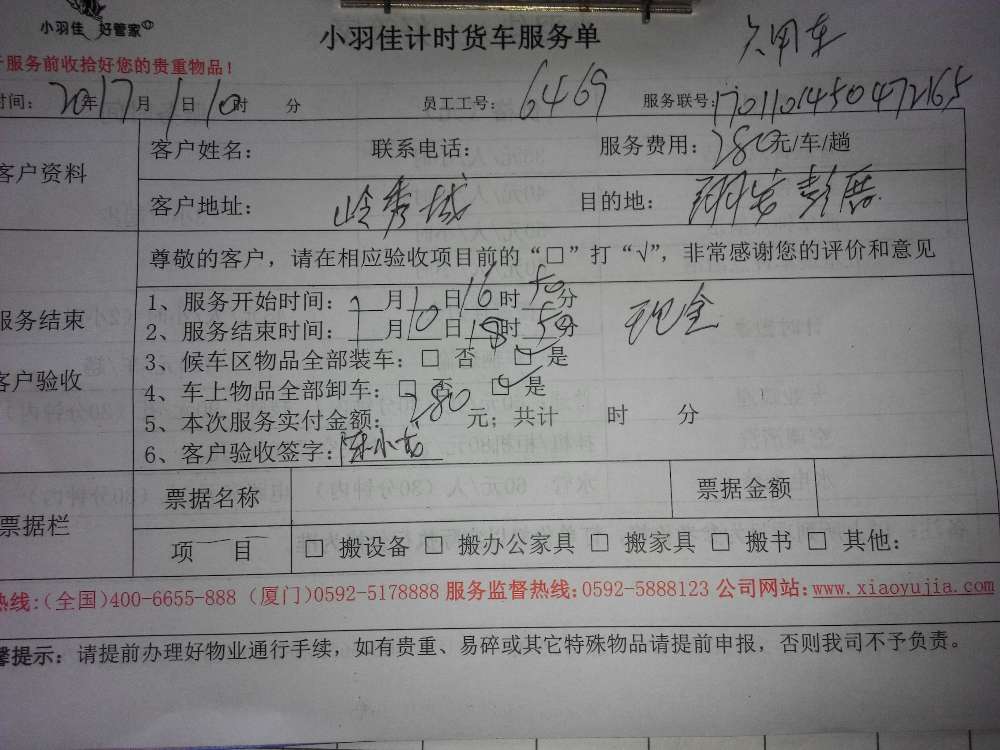 小羽佳 好管家
小羽佳计时货车服务单
服务前收拾好您的贵重物品！
时间： 2017年 1月 1日 10时 分 员工工号：6469 服务联号：17011014504 72165
客户资料
客户姓名： 联系电话： 服务费用：280元/车/趟
客户地址： 岭秀城 目的地： 翔安彭厝
尊敬的客户，请在相应验收项目前的“□”打“√”，非常感谢您的评价和意见
服务结束
客户验收
1、服务开始时间：1月10日16时50分 现金
2、服务结束时间：1月10日18时50分
3、候车区物品全部装车：□ 否 ☑ 是
4、车上物品全部卸车：□ 否 ☑ 是
5、本次服务实付金额：280元；共计 时 分
6、客户验收签字：
票据栏
票据名称 票据金额
项 目 □ 搬设备 □ 搬办公家具 □ 搬家具 □ 搬书 □ 其他：
热线:(全国)400-6655-888 (厦门)0592-5178888 服务监督热线:0592-5888123 公司网站:www.xiaoyujia.com
馨提示：请提前办理好物业通行手续，如有贵重、易碎或其它特殊物品请提前申报，否则我司不予负责。